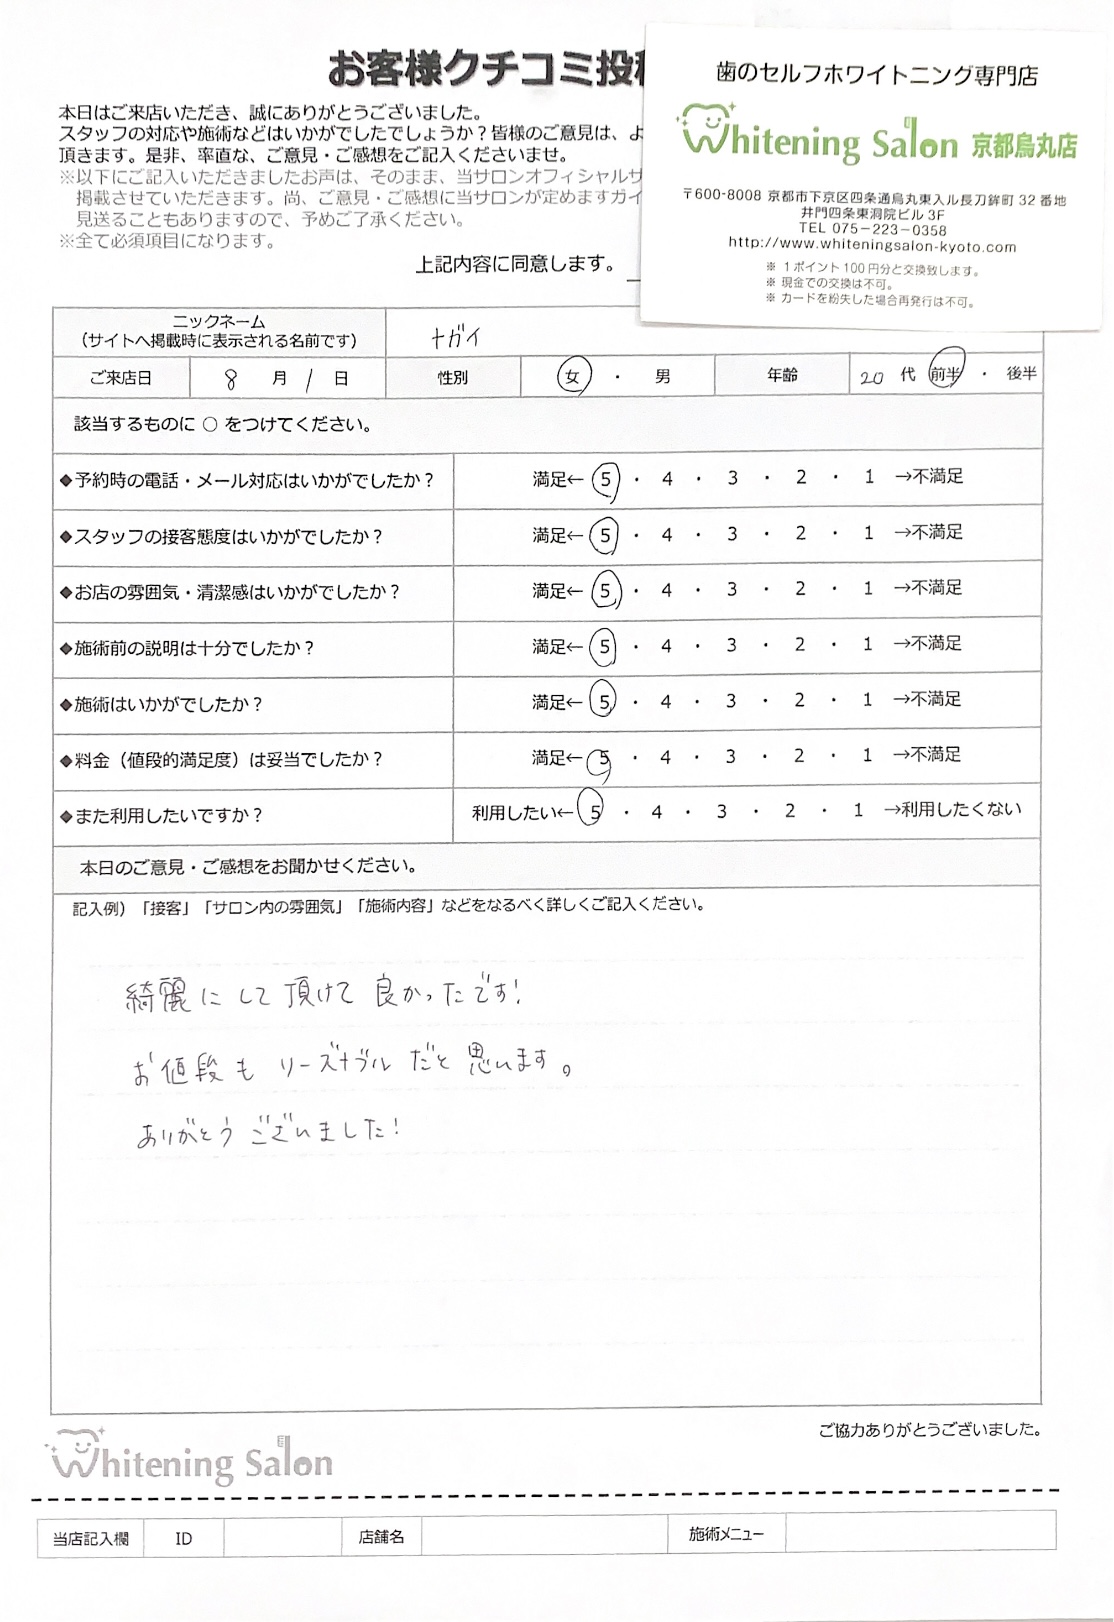 お客様クチコミ投
本日はご来店いただき、誠にありがとうございました。
スタッフの対応や施術などはいかがでしたでしょうか？皆様のご意見は、よ
頂きます。是非、率直な、ご意見・ご感想をご記入くださいませ。
※以下にご記入いただきましたお声は、そのまま、当サロンオフィシャルサ
掲載させていただきます。尚、ご意見・ご感想に当サロンが定めますガイ
見送ることもありますので、予めご了承ください。
※全て必須項目になります。
上記内容に同意します。
歯のセルフホワイトニング専門店
Whitening Salon 京都烏丸店
〒600-8008 京都市下京区四条通烏丸東入ル長刀鉾町 32 番地
井門四条東洞院ビル 3F
TEL 075-223-0358
http://www.whiteningsalon-kyoto.com
※ 1ポイント100円分と交換致します。
※ 現金での交換は不可。
※ カードを紛失した場合再発行は不可。
ニックネーム
（サイトへ掲載時に表示される名前です）
ナガイ
ご来店日 8 月 1 日 性別 女 ・ 男 年齢 20 代 前半 ・ 後半
該当するものに ○ をつけてください。
◆予約時の電話・メール対応はいかがでしたか？ 満足← 5 ・ 4 ・ 3 ・ 2 ・ 1 →不満足
◆スタッフの接客態度はいかがでしたか？ 満足← 5 ・ 4 ・ 3 ・ 2 ・ 1 →不満足
◆お店の雰囲気・清潔感はいかがでしたか？ 満足← 5 ・ 4 ・ 3 ・ 2 ・ 1 →不満足
◆施術前の説明は十分でしたか？ 満足← 5 ・ 4 ・ 3 ・ 2 ・ 1 →不満足
◆施術はいかがでしたか？ 満足← 5 ・ 4 ・ 3 ・ 2 ・ 1 →不満足
◆料金（値段的満足度）は妥当でしたか？ 満足← 5 ・ 4 ・ 3 ・ 2 ・ 1 →不満足
◆また利用したいですか？ 利用したい← 5 ・ 4 ・ 3 ・ 2 ・ 1 →利用したくない
本日のご意見・ご感想をお聞かせください。
記入例）「接客」「サロン内の雰囲気」「施術内容」などをなるべく詳しくご記入ください。
綺麗にして頂けて良かったです！
お値段もリーズナブルだと思います。
ありがとうございました！
ご協力ありがとうございました。
Whitening Salon
当店記入欄 ID 店舗名 施術メニュー